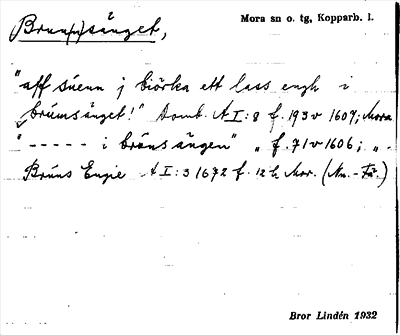 Brun(n)sänget,
Mora sn o. tg, Kopparb. l.
"aff súenn j biörka ett lass engh i
brúmsänget!" Domb. A I:8 f. 193 v 1607; Mora
" ----- i bråns ängen" „ f. 71 v 1606; „ -
Brúns Engie A I:3 1672 f. 12 h Mor. (Nn. - Fä.)
Bror Lindén 1932